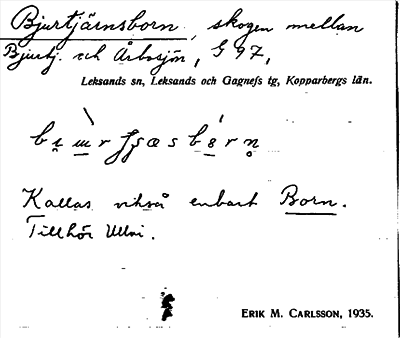 Bjurtjärnsborn, skogen mellan
Bjurtj. och Årbosjön, G 97,
Leksands sn, Leksands och Gagnefs tg, Kopparbergs län.
Kallas också enbart Born.
Tillhör Ullvi.
ERIK M. CARLSSON, 1935.